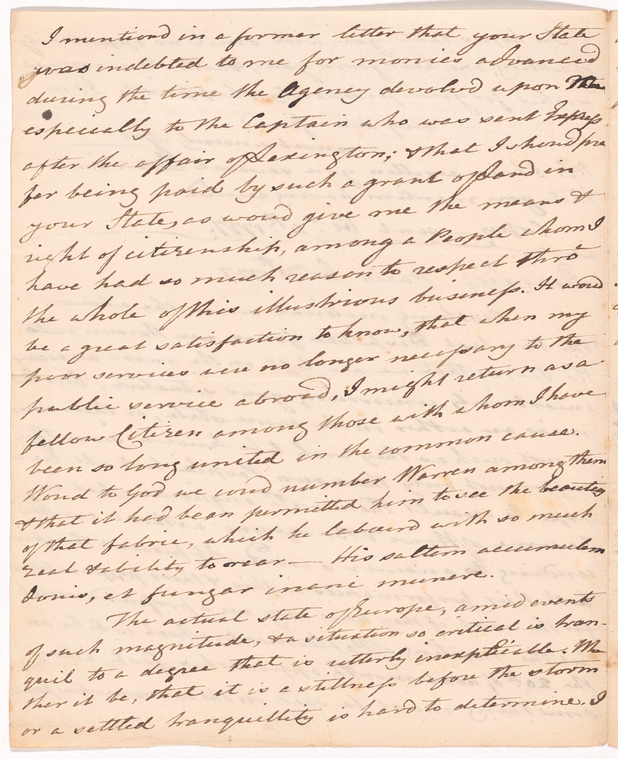 I mentiond in a former letter that your State
was indebted to me for monies advanced
during the time the Agency devolvd upon me
especially to the Captain who was sent Express
after the affair of Lexington; & that I shoud pre
fer being paid by such a grant of Land in
your State, as woud give me the means &
right of citizenship, among a People whom I
have had so much reason to respect thro'
the whole of this illustrious business. It woud
be a great satisfaction to know, that when my
poor services were no longer necessary to the
public service abroad, I might return as a
fellow Citizen among those with whom I have
been so long united in the common cause.
Woud to God we coud number Warren among them
& that it had been permitted him to see the beauties
of that fabric, which he labourd with so much
zeal & ability to rear— His saltem accumulem
donis, et fungar inani munere.
The actual state of Europe, amid events
of such magnitude, & a situation so critical is tran-
quil to a degree that is utterly inexplicable. Whe
ther it be, that it is a stillness before the storm
or a settled tranquillity is hard to determine. I